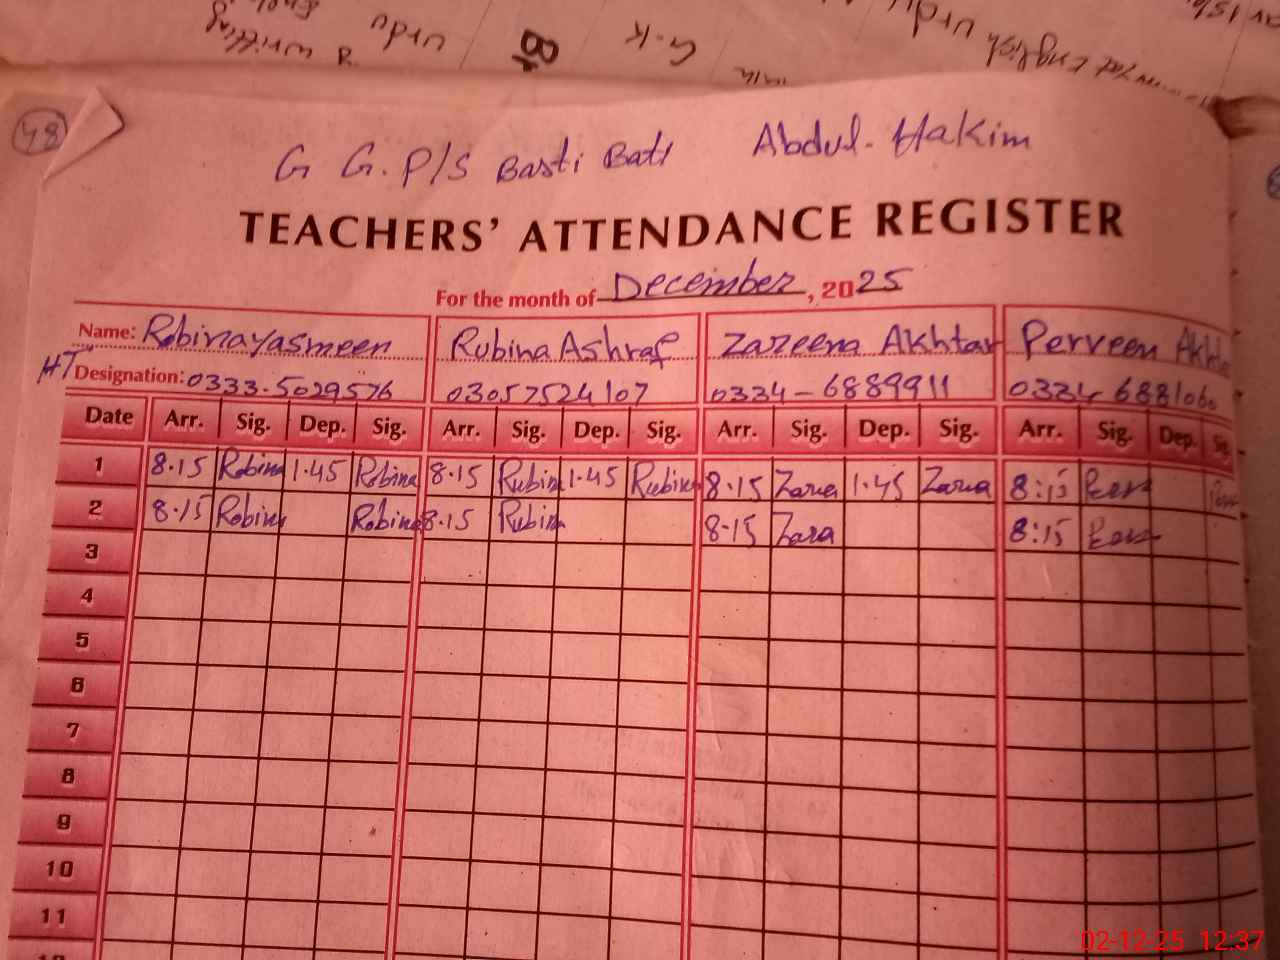 writting English
urdu
G.K
urdu
English
48
G G.P/S Basti Bati Abdul. Hakim
TEACHERS' ATTENDANCE REGISTER
For the month of December, 2025
Name: Robina yasmeen Rubina Ashraf Zareena Akhtar Perveen Akhtar
HT Designation: 0333-5029576 03057524107 0334-6889911 0334 6881060
Date Arr. Sig. Dep. Sig. Arr. Sig. Dep. Sig. Arr. Sig. Dep. Sig. Arr. Sig. Dep. Sig.
1 8.15 Robina 1.45 Robina 8.15 Rubina 1.45 Rubina 8.15 Zara 1.45 Zara 8:15
2 8.15 Robina Robina 8.15 Rubina 8.15 Zara 8:15
3
4
5
6
7
8
9
10
11
02-12-25 12:37